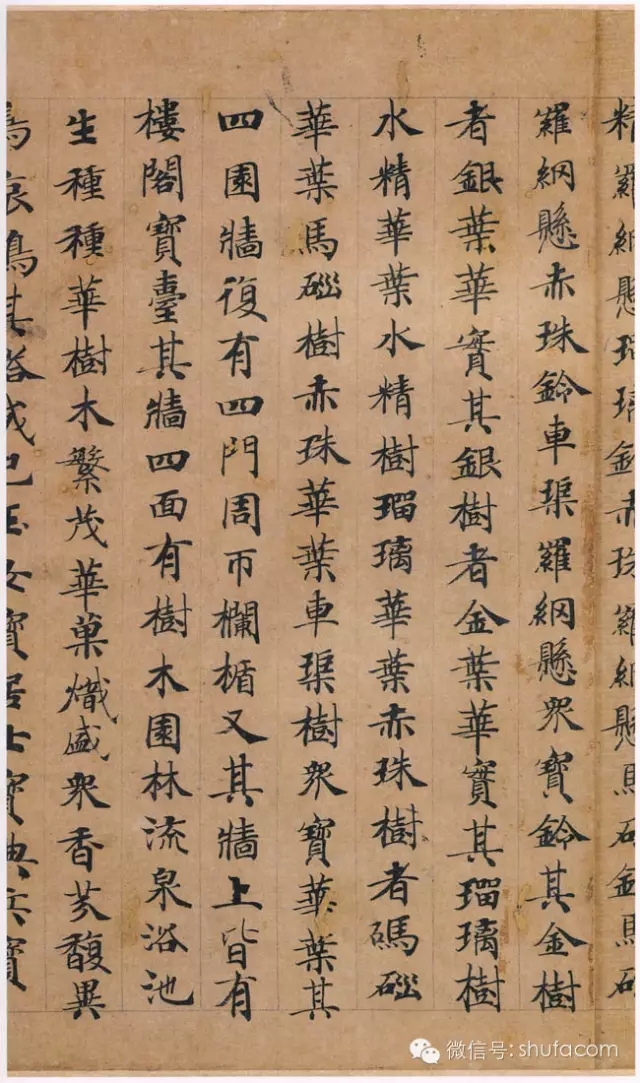 精羅網懸瑠璃鈴赤珠羅網懸馬碯鈴馬碯
羅網懸赤珠鈴車渠羅網懸衆寶鈴其金樹
者銀葉華實其銀樹者金葉華實其瑠璃樹
水精華葉水精樹瑠璃華葉赤珠樹者碼碯
華葉馬碯樹赤珠華葉車渠樹衆寶華葉其
四園牆復有四門周帀欄楯又其牆上皆有
樓閣寶臺其牆四面有樹木園林流泉浴池
生種種華樹木繁茂華菓熾盛衆香芬馥異
鳥哀鳴其塔成已玉女寶居士寶典兵寶
微信号: shufacom